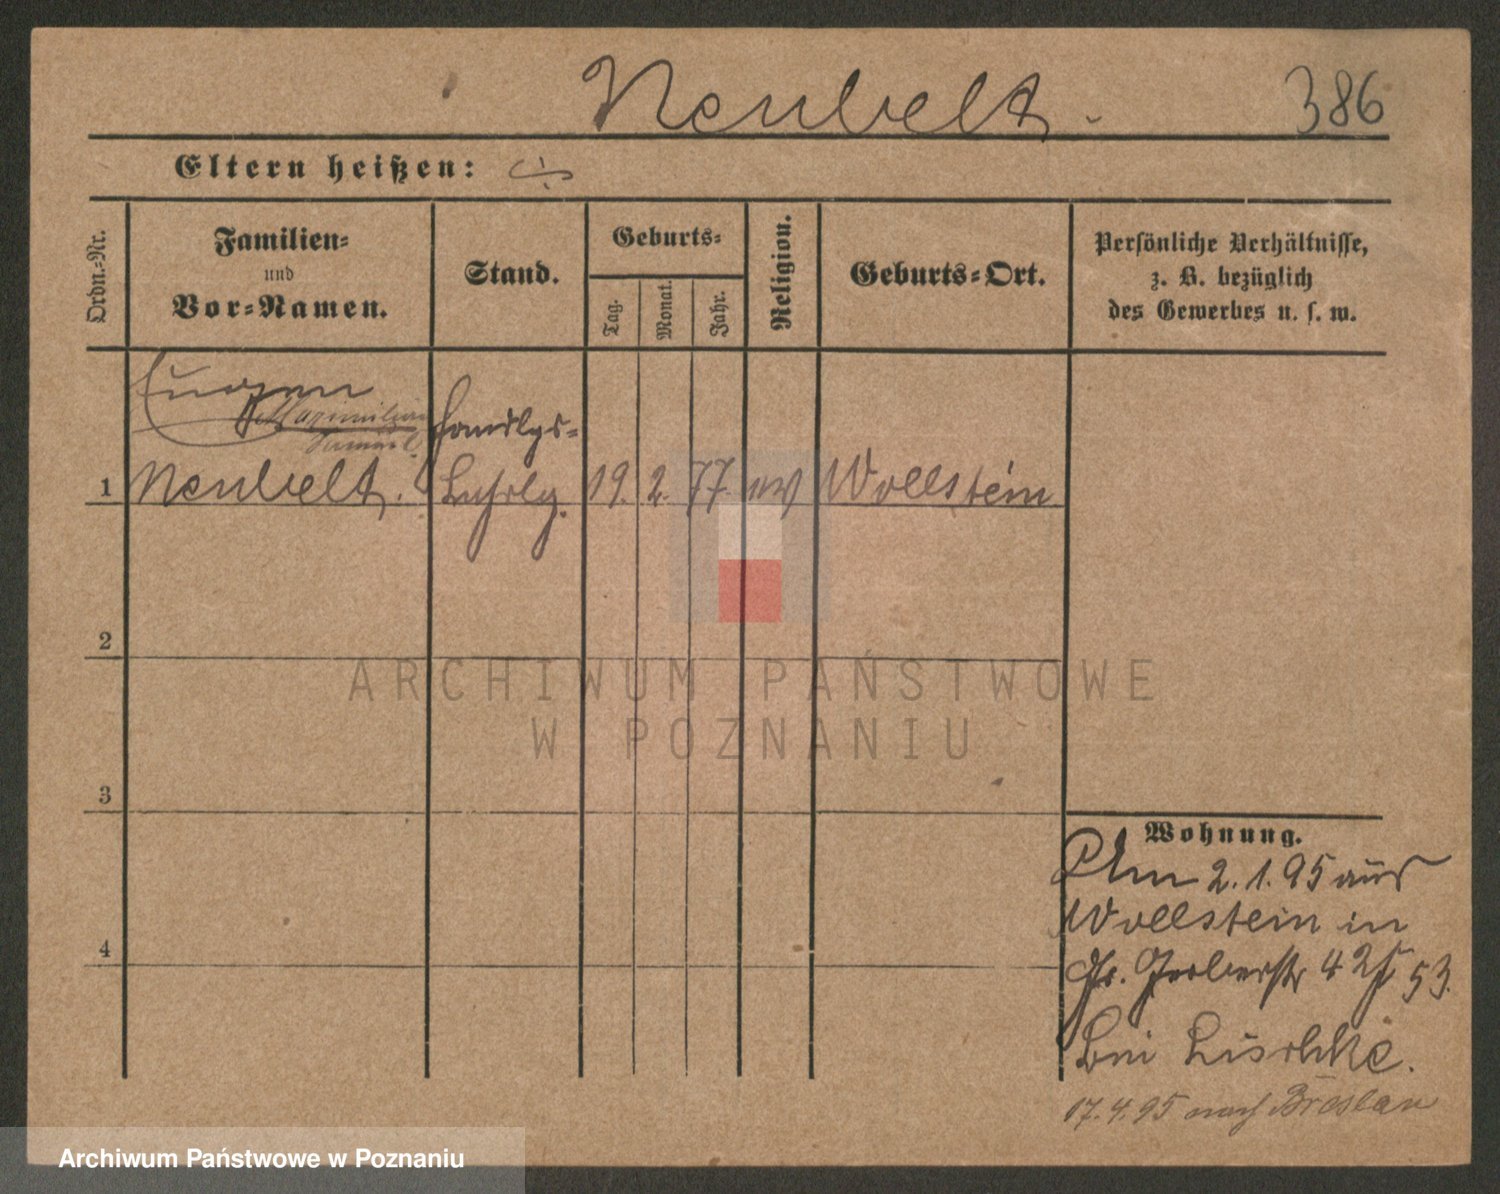 Neubelt.
386
Eltern heißen:
Ordn.-Nr.
Familien-
und
Vor-Namen.
Stand.
Geburts-
Tag.
Monat.
Jahr.
Religion.
Geburts-Ort.
Persönliche Verhältnisse,
z. B. bezüglich
des Gewerbes u. s. w.
Eugen
Maximilian
Samuel
1 Neubelt. Handlgs-
Lehrlg. 19. 2. 77. ev Wollstein
2
3
4
Wohnung.
Am 2.1.95 aus
Wollstein in
Gr. Gerberstr 42 53.
bei Lischke.
17.4.95 nach Breslau
ARCHIWUM PAŃSTWOWE
W POZNANIU
Archiwum Państwowe w Poznaniu